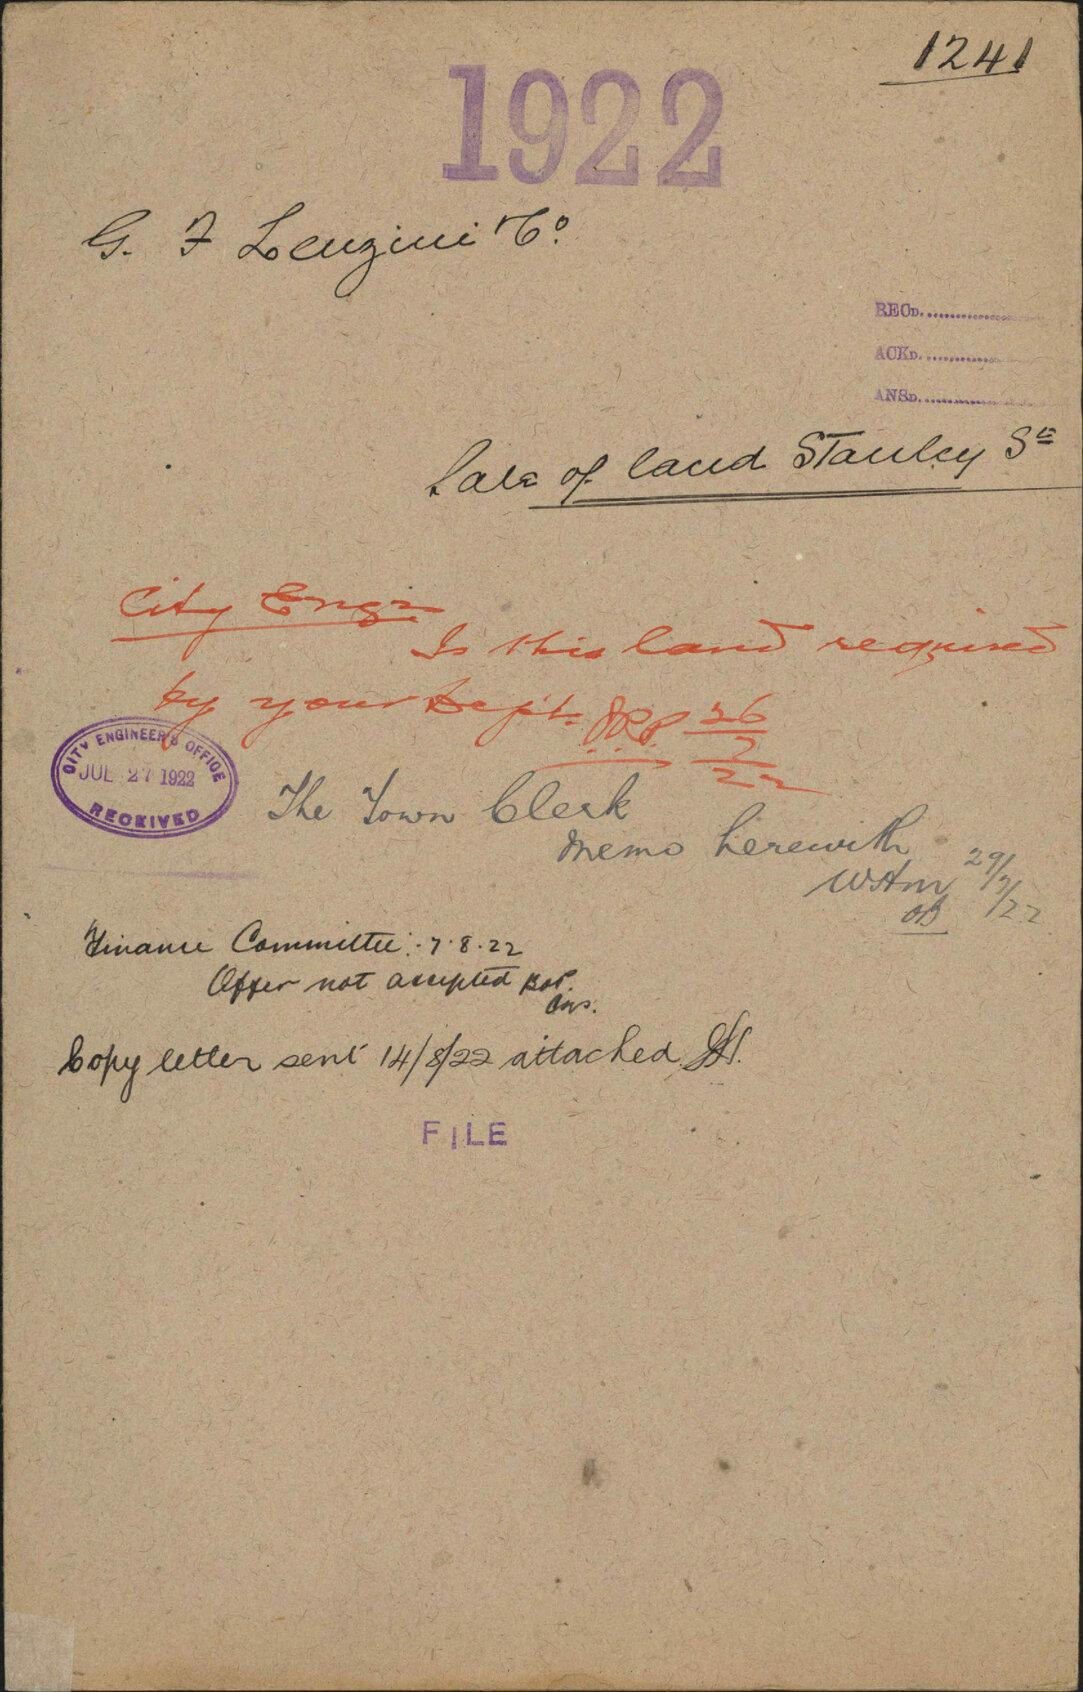 1241
1922
G. F Lenzini & Co.
RECD.
ACKD.
ANSD.
Sale of land Stanley St
City Engr.
Is this land required
by your Dept. 26/7/22
CITY ENGINEER'S OFFICE
JUL 27 1922
RECEIVED
The Town Clerk
Memo herewith
WAM 29/7/22
Finance Committee:- 7.8.22
Offer not accepted
Copy letter sent 14/8/22 attached
FILE